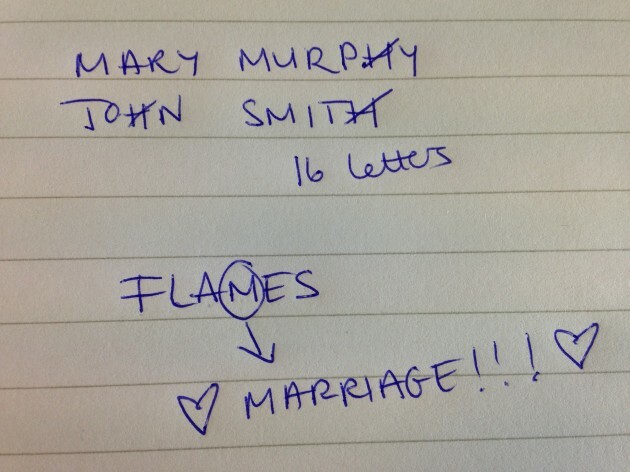 MARY MURPHY
JOHN SMITH
16 letters
FLAMES
MARRIAGE!!!